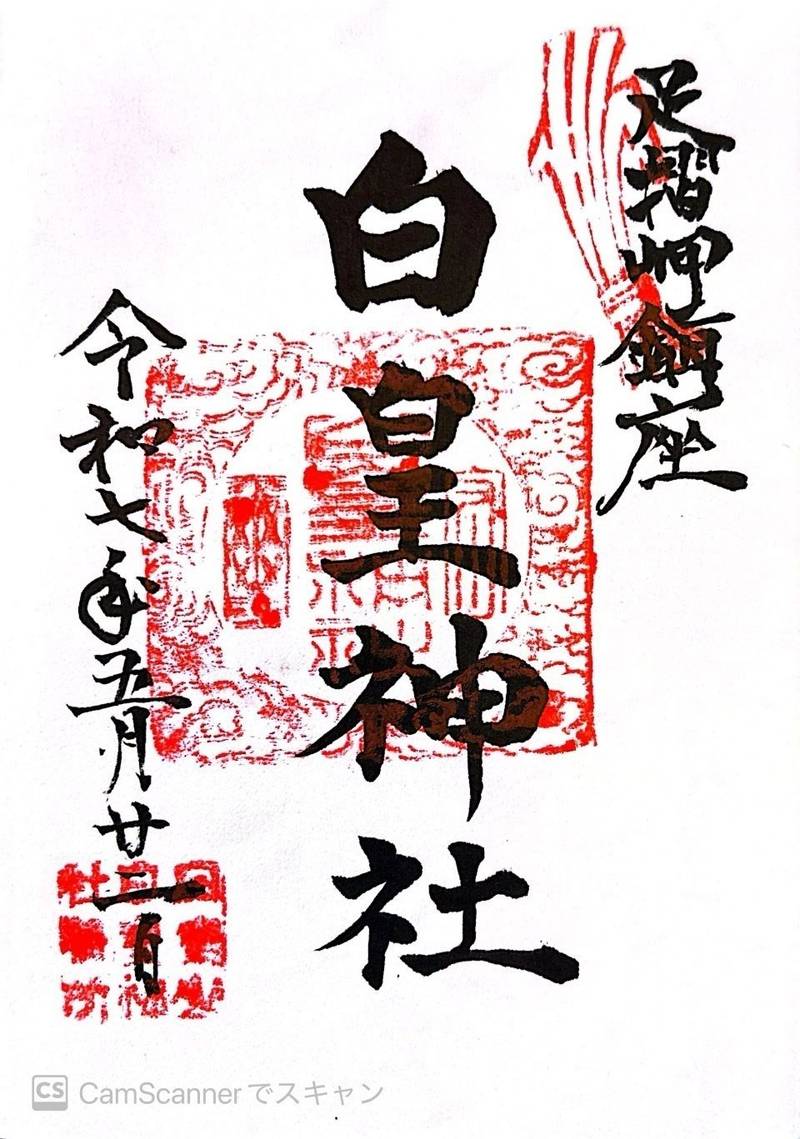 足摺岬鎮座
白皇神社
令和七年五月廿二日
CS CamScannerでスキャン